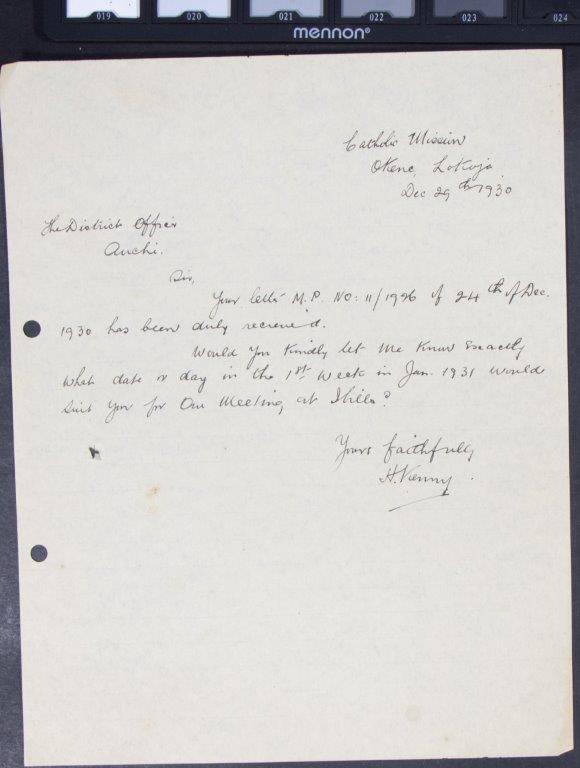 019 020 021 022 023 024
mennon®
Catholic Mission
Okene, Lokoja
Dec 29th 1930
The District Officer
Auchi.
Sir,
Your letter M.P. No: 11/1926 of 24th of Dec.
1930 has been duly received.
Would you kindly let me know exactly
what date or day in the 1st week in Jan. 1931 would
suit you for our meeting at Ibillo?
Yours faithfully
H. Kenny.